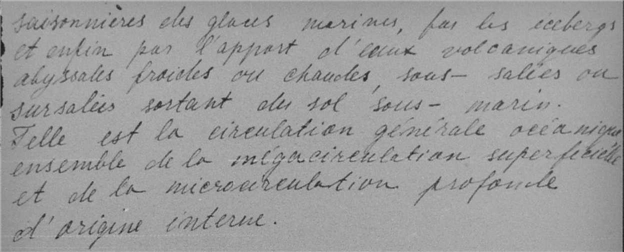 saisonnières des glaces marines, par les icebergs
et enfin par l'apport d'eaux volcaniques
abyssales froides ou chaudes, sous-salées ou
sursalées sortant du sol sous-marin.
Telle est la circulation générale océanique
ensemble de la mégacirculation superficielle
et de la microcirculation profonde
d'origine interne.